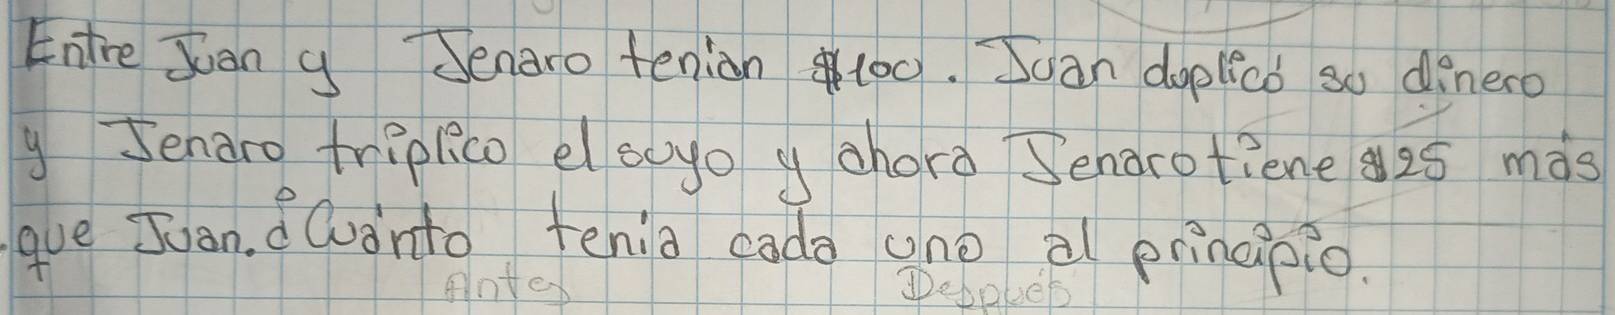 Entre Juan y Jenaro tenian $100. Juan duplicó su dinero
y Jenaro triplico el suyo y ahora Jenaro tiene $25 más
que Juan. ¿Cuánto tenia cada uno al principio.
Antes Después